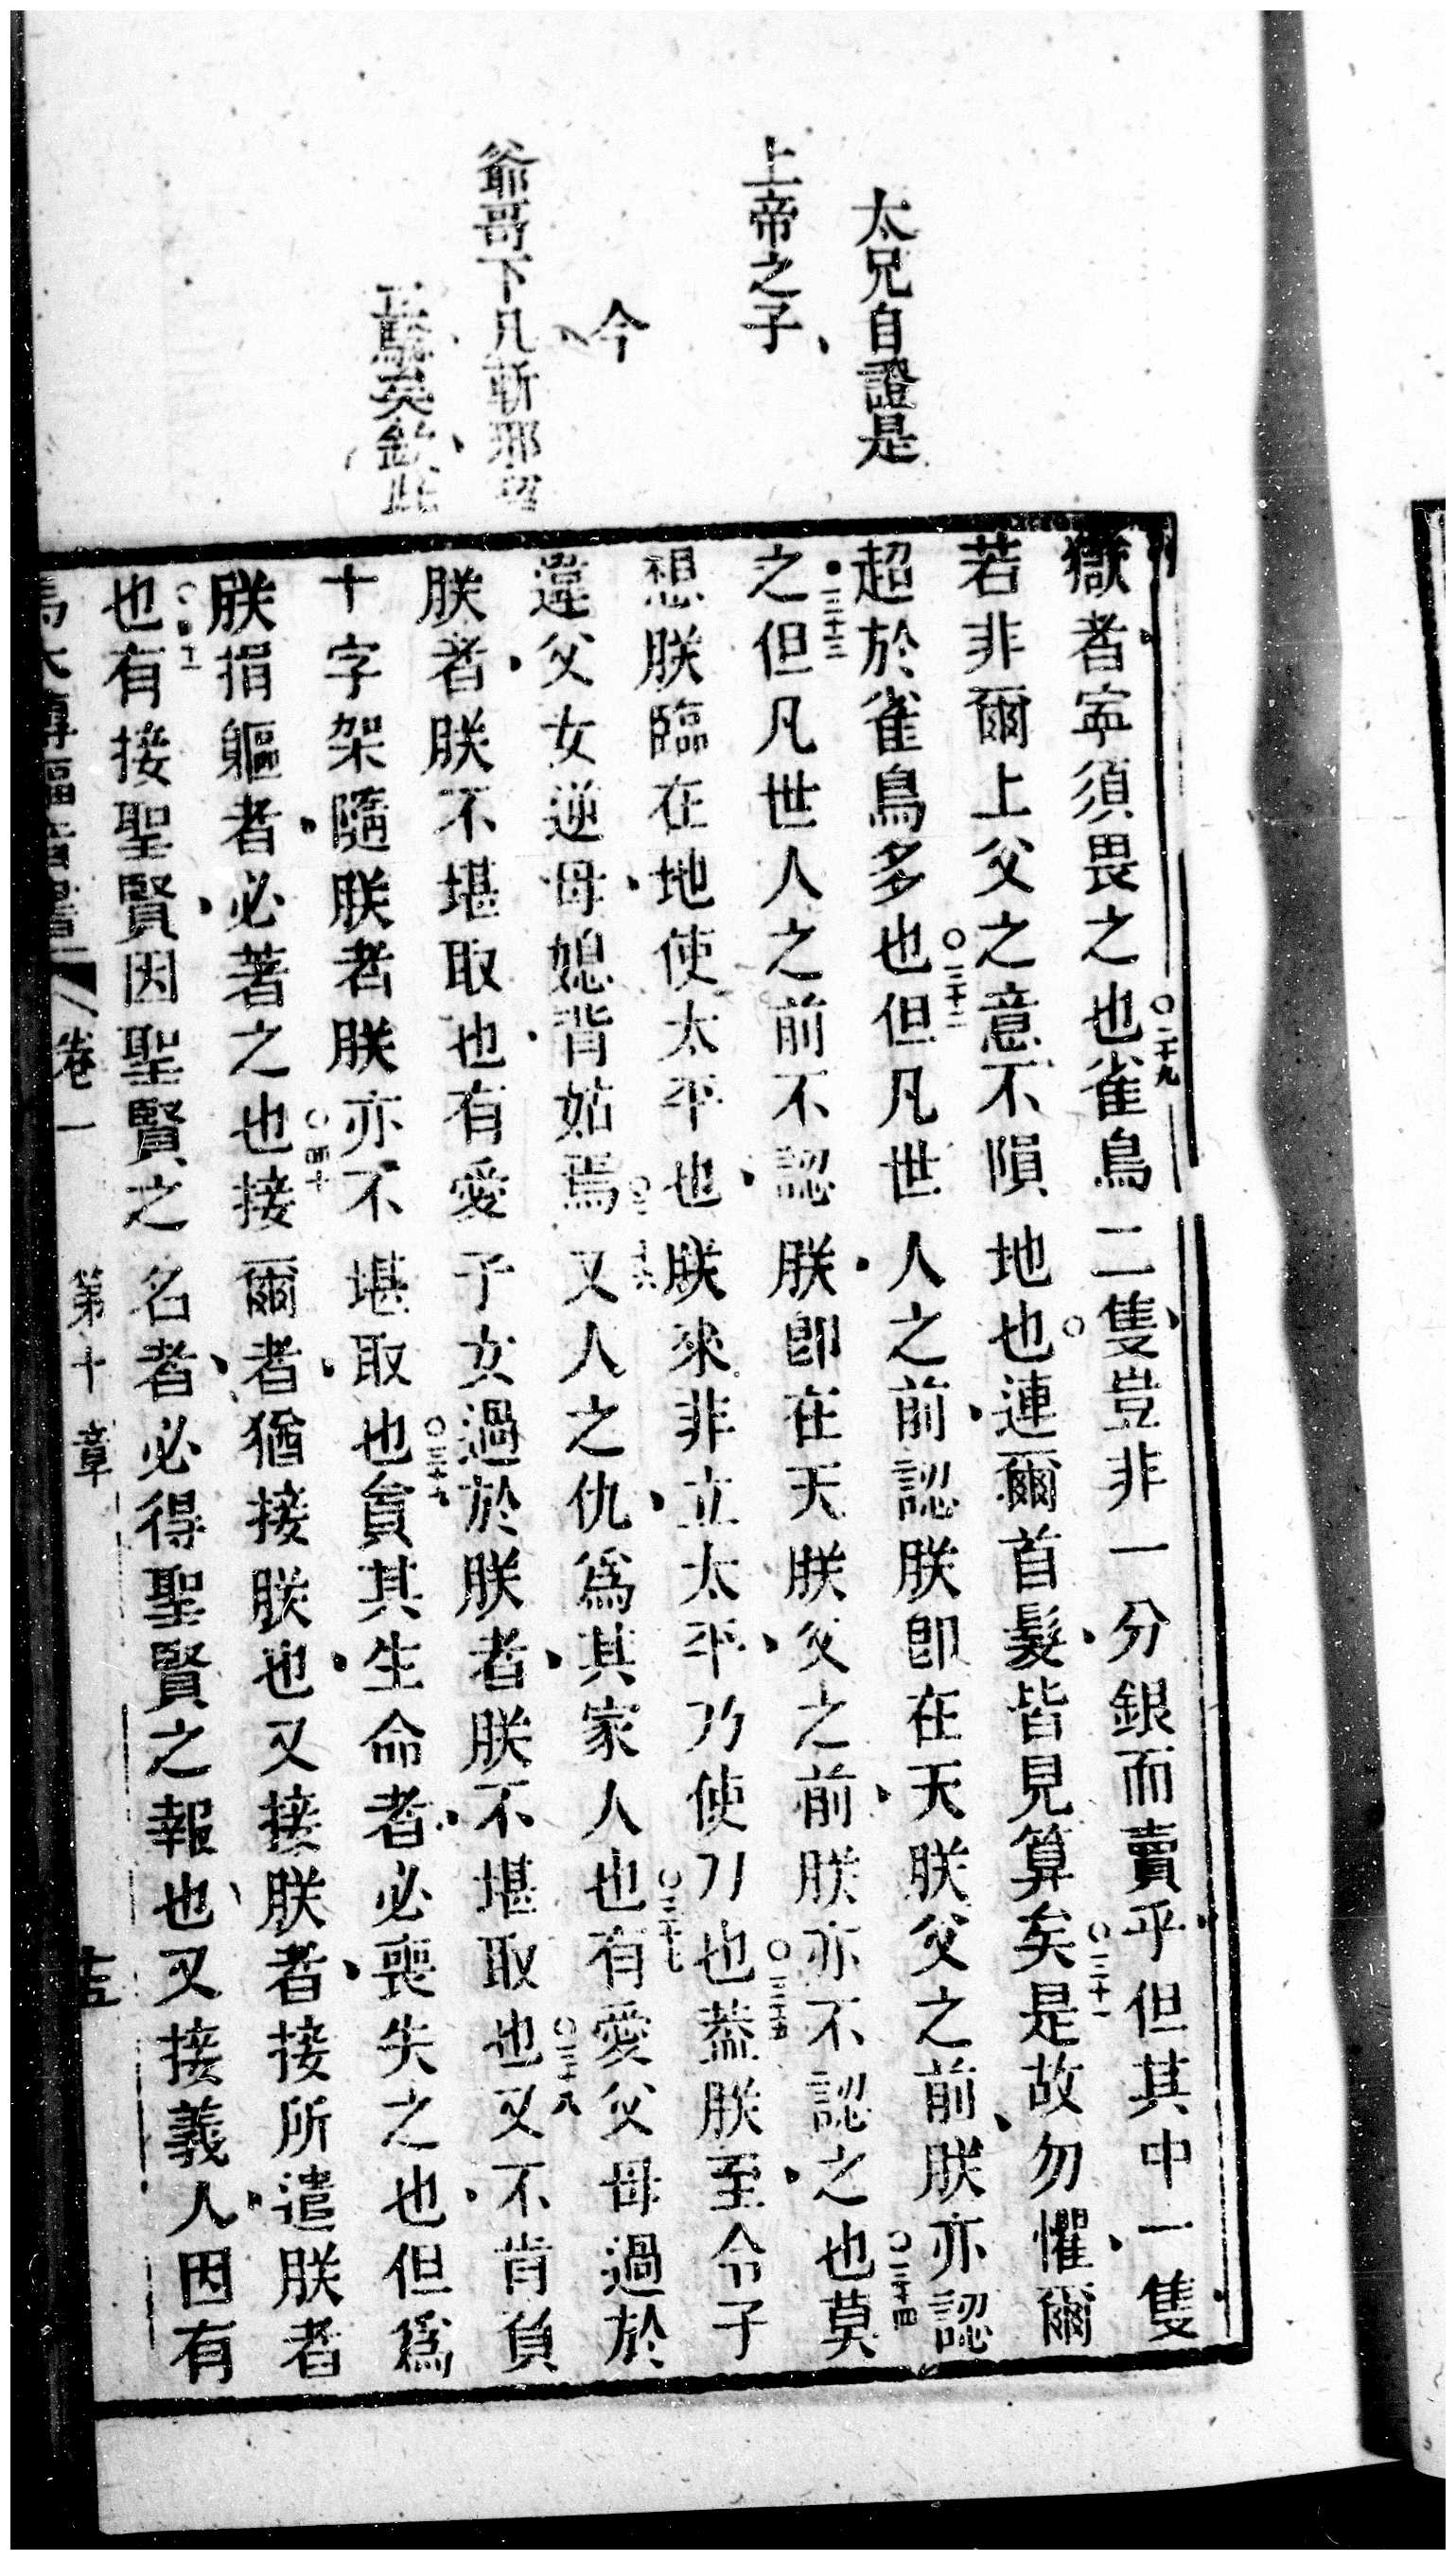 太兄自證是
上帝之子、
今
爺哥下凡斬邪
矣欽此
獄者寧須畏之也○二十九雀鳥二隻、豈非一分銀而賣乎、但其中一隻、
若非爾上父之意不隕地也○連爾首髮、皆見算矣○三十一是故勿懼、爾
超於雀鳥多也○三十二但凡世人之前、認朕卽在天朕父之前、朕亦認
之、三十三但凡世人之前不認朕、卽在天朕父之前、朕亦不認之也○三十四莫
想朕臨在地使太平也、朕來非立太平、乃使刀也○三十五蓋朕至、令子
違父女逆母、媳背姑焉○三十六又人之仇、爲其家人也○三十七有愛父母過於
朕者、朕不堪取也、有愛子女過於朕者、朕不堪取也○三十八又不肯負
十字架隨朕者朕亦不堪取也○三十九負其生命者、必喪失之也、但爲
朕捐軀者、必著之也○四十接爾者、猶接朕也、又接朕者、接所遣朕者
也○有接聖賢、因聖賢之名者、必得聖賢之報也、又接義人、因有
卷一 第十章